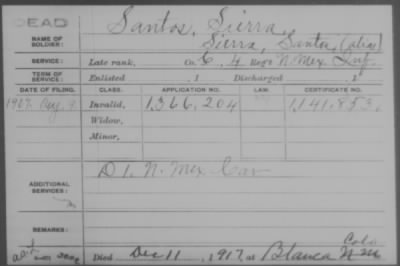 DEAD
NAME OF SOLDIER: Santos, Sierra,
Sierra, Santos, (alias)
SERVICE: Late rank, Co. E, 4 Reg't N. Mex. Inf.
TERM OF SERVICE: Enlisted , 1 Discharged , 1
DATE OF FILING. CLASS. APPLICATION NO. LAW. CERTIFICATE NO.
1907. Aug. 9. Invalid, 1,366,204 1,141,853.
Widow,
Minor,
ADDITIONAL SERVICES: D 1. N. Mex Cav
REMARKS:
Died Dec 11, 1917, at Blanca Colo